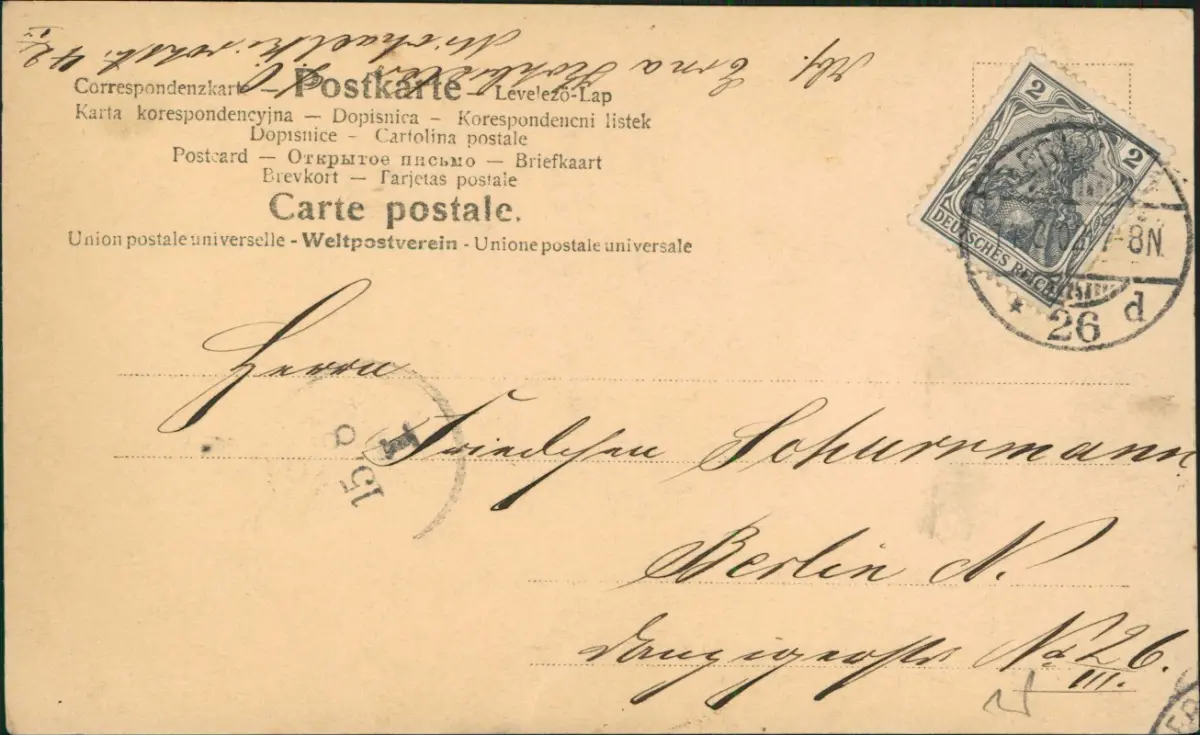 Abs. Erna
Michaelkirchstr. 42
Correspondenzkarte — Postkarte — Levelező-Lap
Karta korespondencyjna — Dopisnica — Korespondencni listek
Dopisnice - Cartolina postale
Postcard — Открытое письмо — Briefkaart
Brevkort — Tarjetas postale
Carte postale.
Union postale universelle - Weltpostverein - Unione postale universale
2
2
DEUTSCHES REICH
7-8N.
* 26 d
Herrn
Friedchen Schurrmann
15 8
Berlin N.
Danzigerstr No 26.
III.